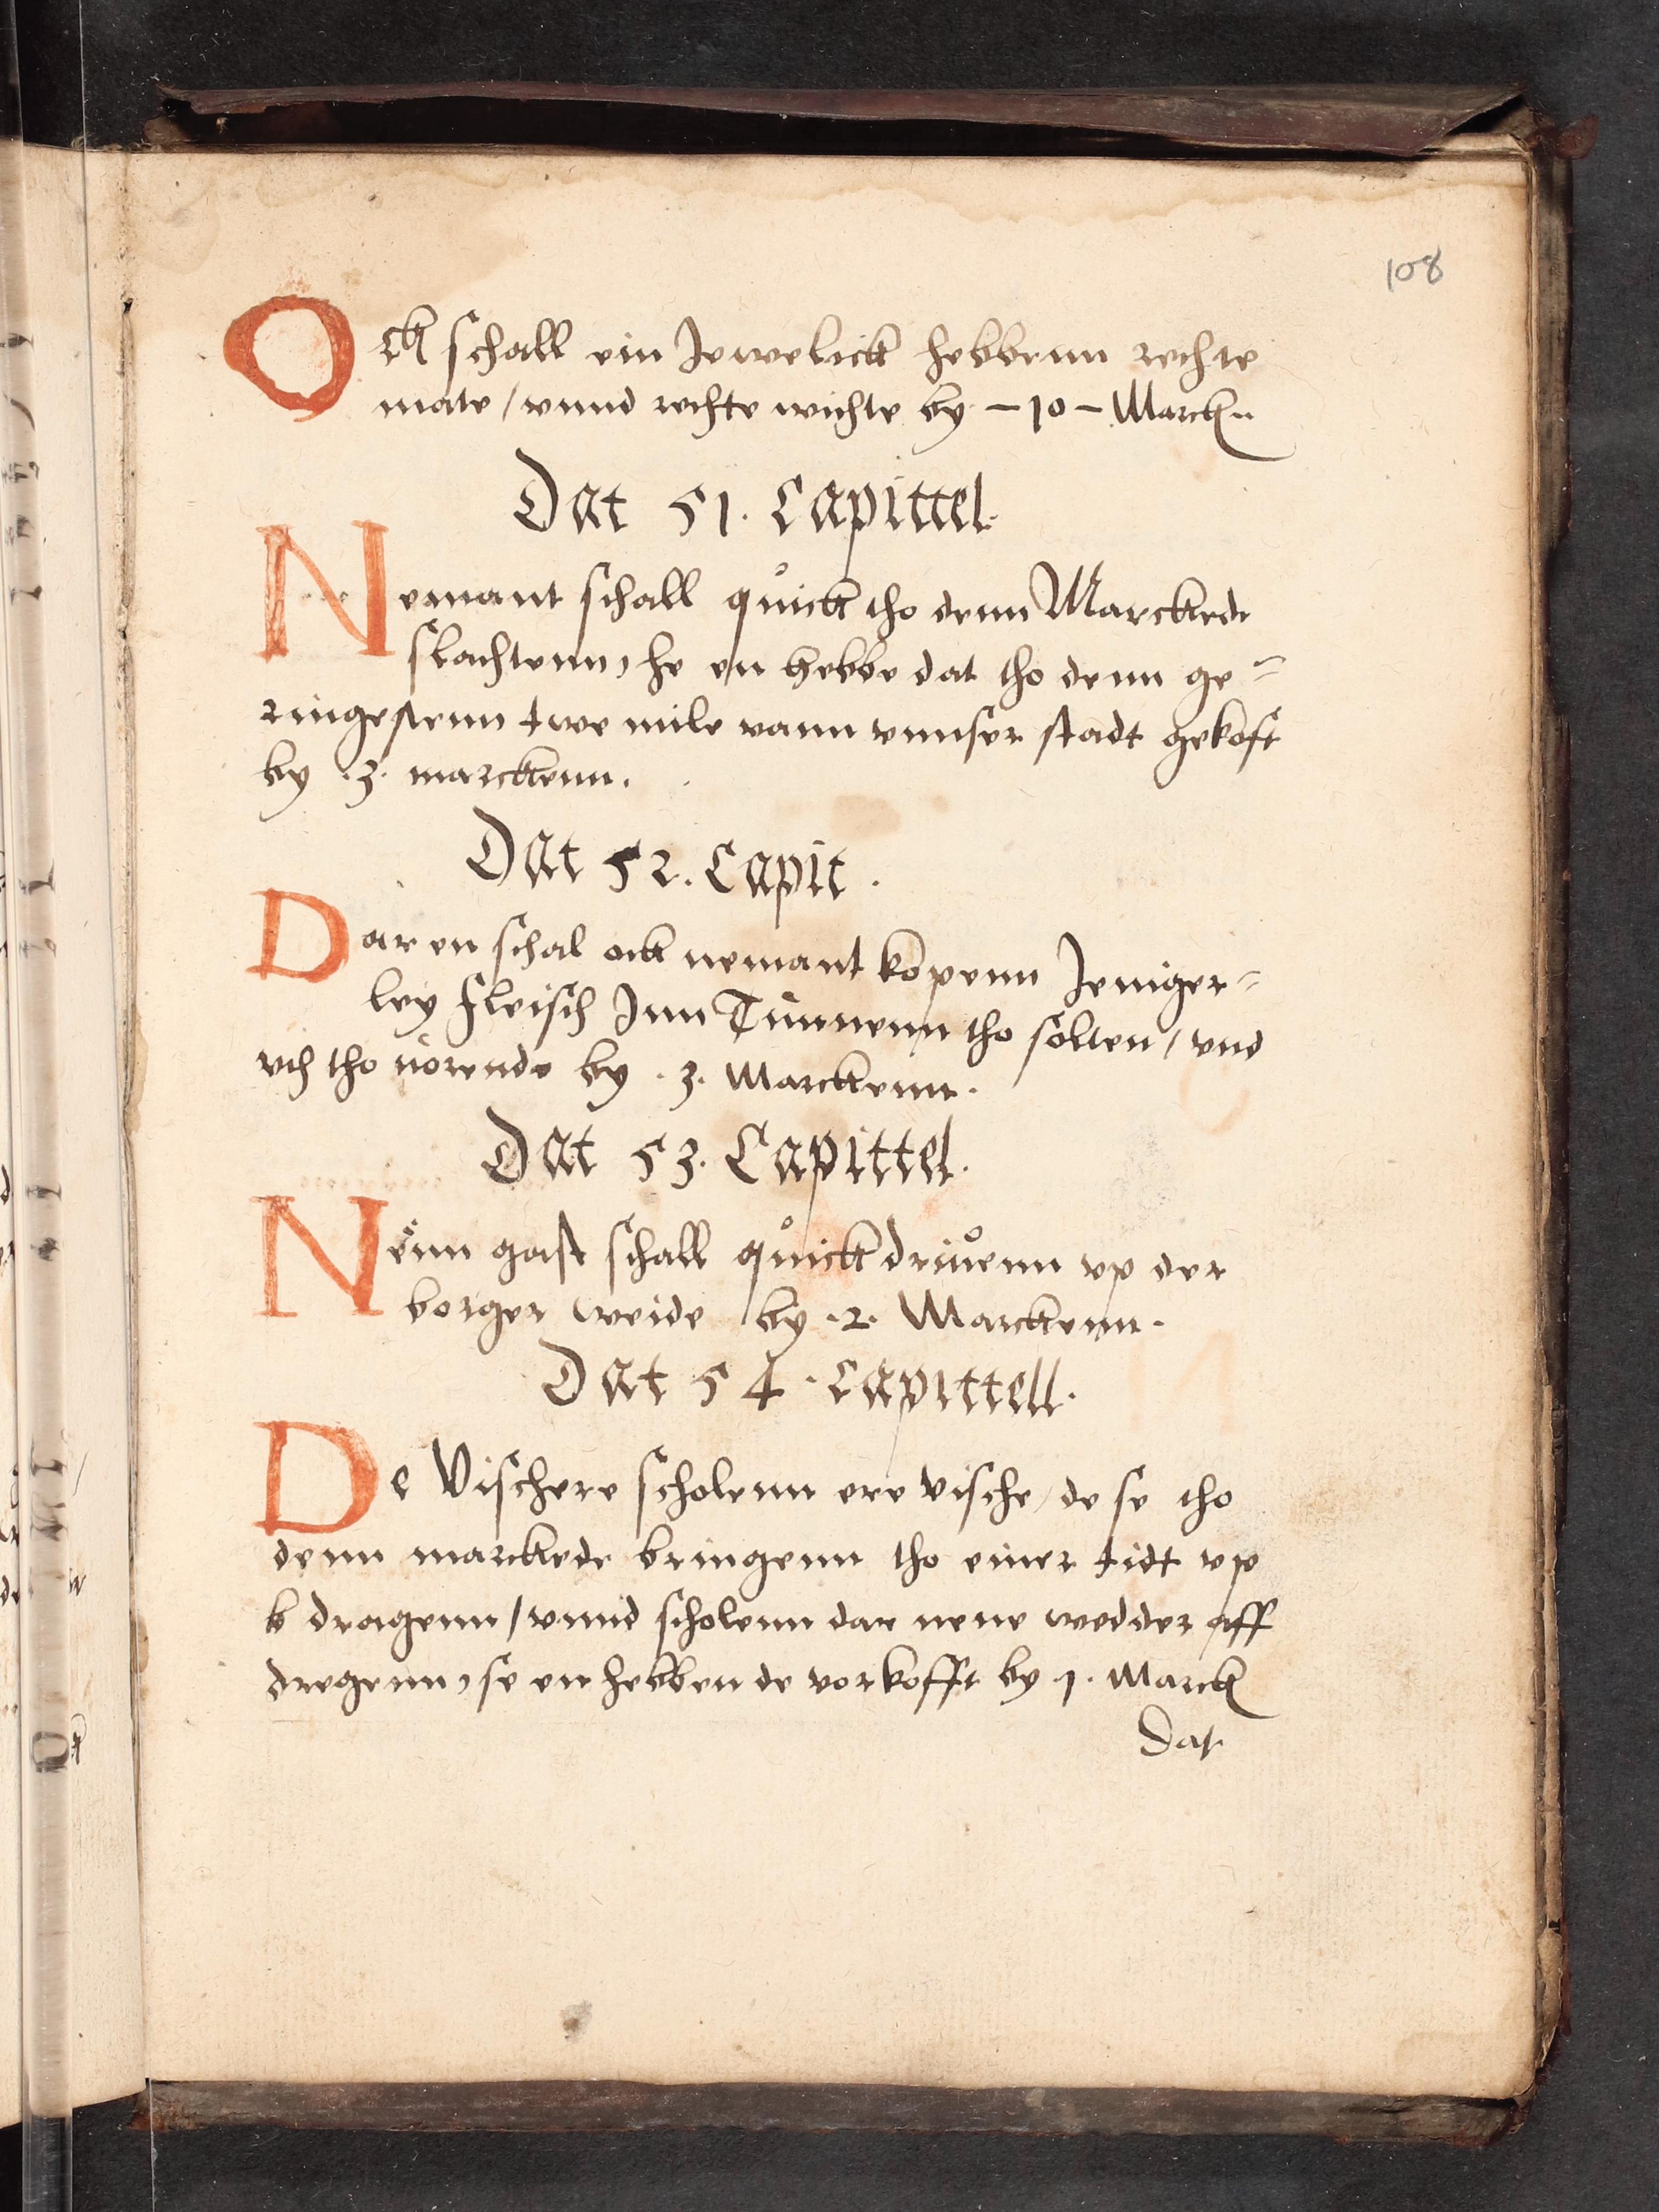 108
Ock schall ein Jewelick hebbenn rechte
mate / vnnd rechte wichte by – 10 – Marck
Dat 51. Capittel.
Nemant schall quick tho denn Marckede
slachtenn, he en hebbe dat tho denn ge⸗
ringestenn twe mile vann vnnser stadt gekoft
by .3. marckenn.
Dat 52. Capit.
Dar en schal ock nemant kopenn Jeniger⸗
ley fleisch Jnn Tunnenn tho solten / vnd
vth tho uörende by .3. Marckenn.
Dat 53. Capittel.
Nenn gast schall quick driuenn vp der
borger weide by .2. Marckenn.
Dat 54. Capittell.
De Vischere scholenn ere vische, de se tho
denn marckede bringenn tho einer tidt vp
dragenn / vnnd scholenn dar nene wedder aff
dregenn, se en hebben de vorkofft by 1. Marck
Dat